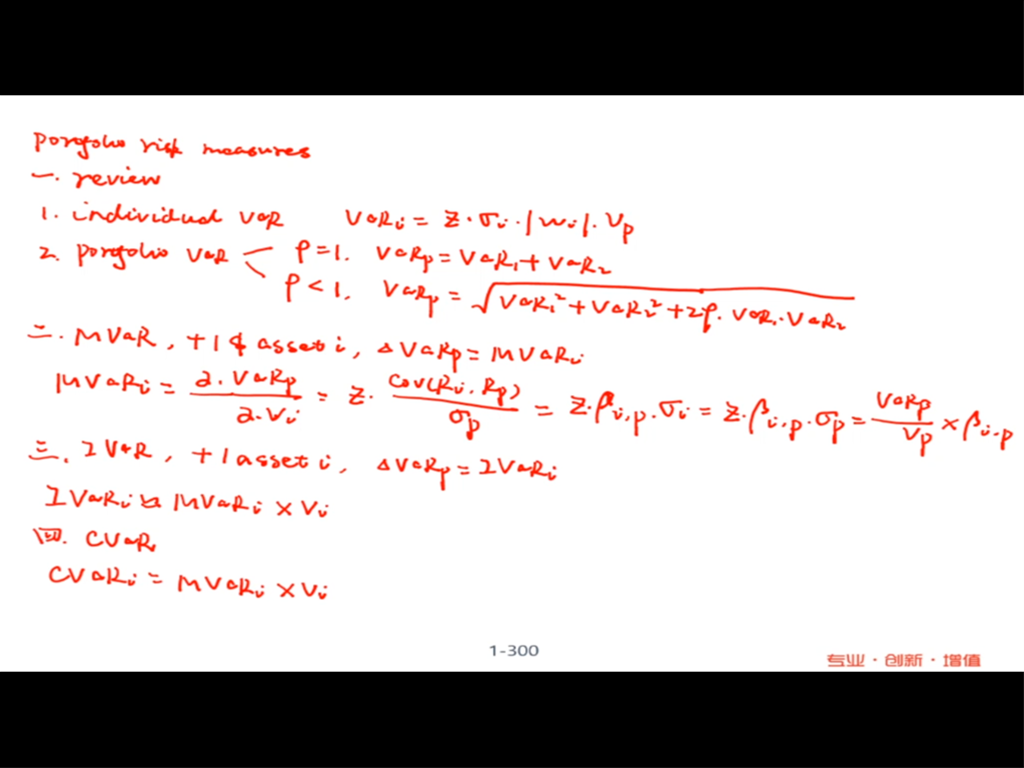 Portfolio risk measures
一. review
1. individual VaR VaRi = Z·σi·|wi|·Vp
2. portfolio VaR ρ=1. VaRp = VaR1 + VaR2
ρ<1. VaRp = √(VaR1² + VaR2² + 2ρ·VaR1·VaR2)
二. MVaR, +1$ asset i, ΔVaRp = MVaRi
MVaRi = ∂·VaRp / ∂·Vi = Z· cov(Ri, Rp) / σp = Z·βi,p·σi = Z·βi,p·σp = VaRp / Vp × βi,p
三. IVaR, +1 asset i, ΔVaRp = IVaRi
IVaRi ≈ MVaRi × Vi
四. CVaR
CVaRi = MVaRi × Vi
1-300
专业·创新·增值